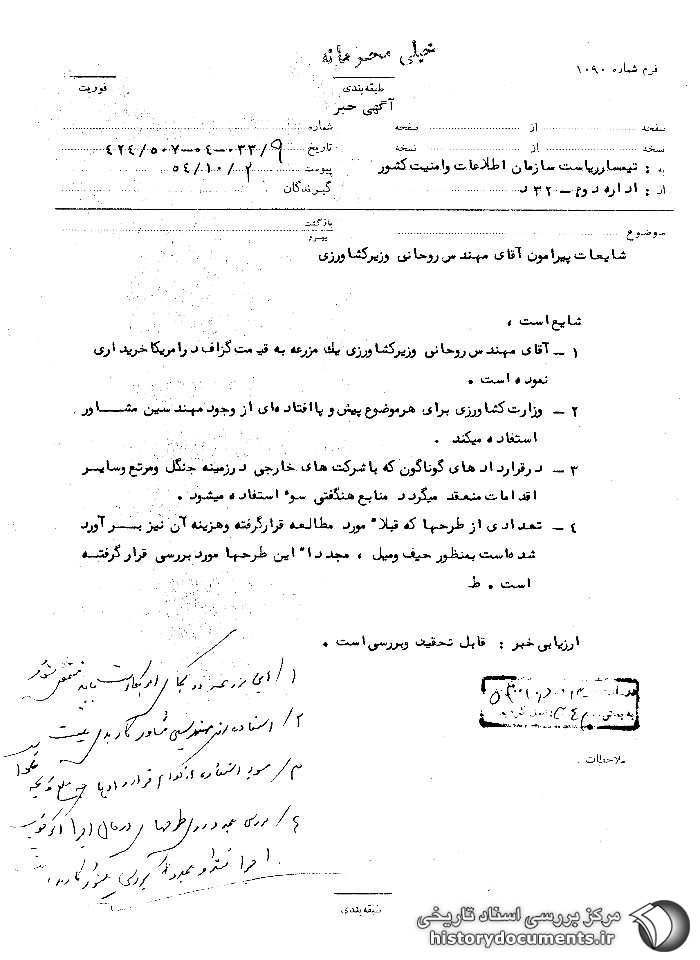 خیلی محرمانه
فرم شماره ۱۰۹۰
طبقه‌بندی
فوریت
آگهی خبر
صفحه از صفحه
شماره
نسخه از نسخه
تاریخ ۴۲۴/۵۰۷-۰۴-۰۳۳/۹
به : تیمسار ریاست سازمان اطلاعات وامنیت کشور
پیوست ۵۴/۱۰/۲
از : اداره دوم - ۳۲۰ د
گیرندگان
موضوع
بازگشت
پیرو
شایعات پیرامون آقای مهندس روحانی وزیرکشاورزی
شایع است ،
۱ - آقای مهندس روحانی وزیرکشاورزی یك مزرعه به قیمت گزاف درامریکا خریداری
نموده است .
۲ - وزارت کشاورزی برای هرموضوع پیش و پاافتاده‌ای از وجود مهندسین مشاور
استفاده میکند .
۳ - درقراردادهای گوناگون که باشرکت های خارجی درزمینه جنگل ومرتع وسایر
اقدامات منعقد میگردد منابع هنگفتی سوء استفاده میشود .
۴ - تعدادی از طرحها که قبلا" مورد مطالعه قرارگرفته وهزینه آن نیز برآورد
شده‌است بمنظور حیف ومیل ، مجددا" این طرحها مورد بررسی قرار گرفته
است . ط
ارزیابی خبر : قابل تحقید وبررسی است .
۱/ این مزرعه در کجای امریکاست باید مشخص شود
۲/ استفاده از مهندسین مشاور کار بدی نیست
۳/ سوء استفاده از کدام قراردادها
۴/ بررسی مجدد روی طرحهای درحال اجرا
ملاحظات
طبقه‌بندی
مرکز بررسی اسناد تاریخی
historydocuments.ir